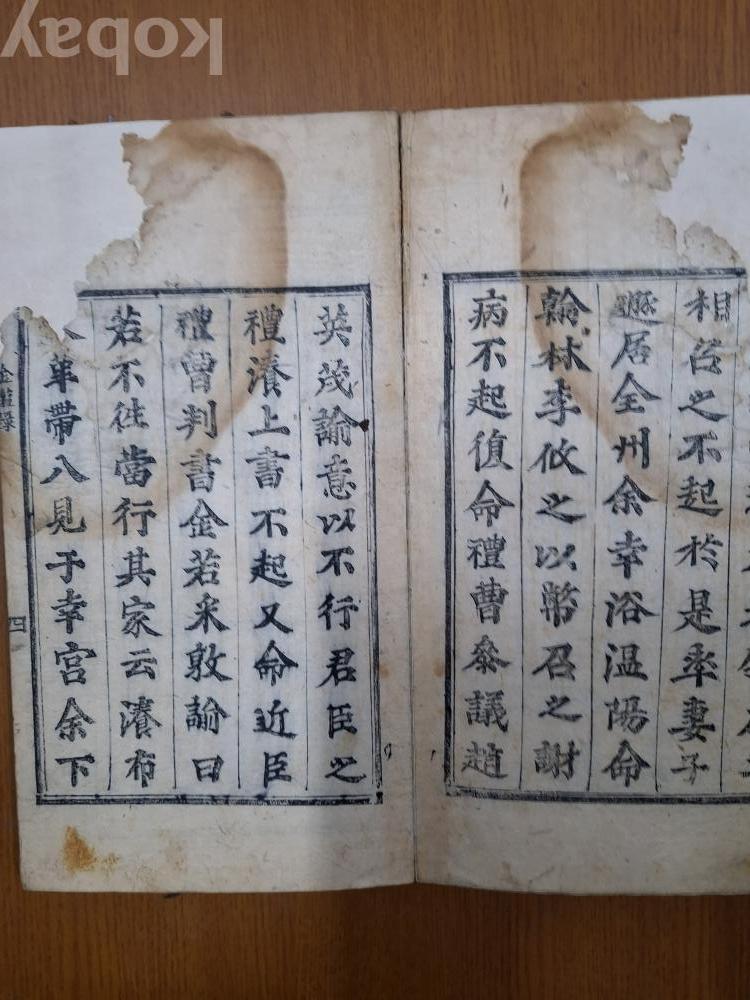 Kobay
相召之不起於是率妻子
遯居全州余幸浴温陽命
翰林李攸之以幣召之謝
病不起復命禮曹叅議趙
英茂諭意以不行君臣之
禮濆上書不起又命近臣
禮曹判書金若采敦諭曰
若不往當行其家云濆布
革帶入見于幸宮余下
四